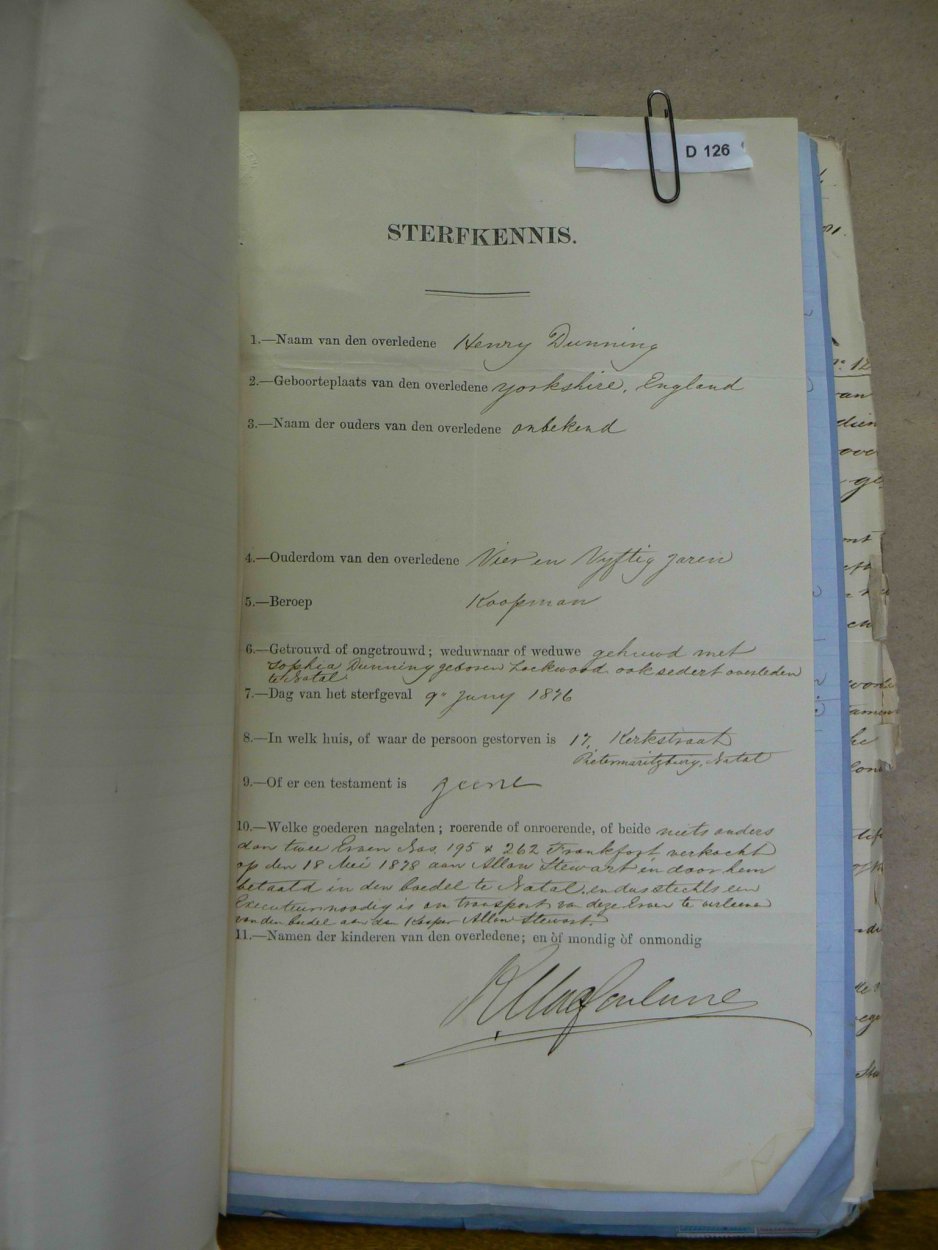 D 126
STERFKENNIS.
1.—Naam van den overledene Henry Dunning
2.—Geboorteplaats van den overledene Yorkshire, England
3.—Naam der ouders van den overledene onbekend
4.—Ouderdom van den overledene Vier en Vyftig Jaren
5.—Beroep Koopman
6.—Getrouwd of ongetrouwd; weduwnaar of weduwe gehuwd met
Sophia Dunning geboren Lockwood ook sedert overleden
te Natal.
7.—Dag van het sterfgeval 9n Juny 1876
8.—In welk huis, of waar de persoon gestorven is 17, Kerkstraat
Pietermaritzburg, Natal
9.—Of er een testament is geene
10.—Welke goederen nagelaten; roerende of onroerende, of beide niets anders
dan twee Erven Nos. 195 & 262 Frankfort verkocht
op den 18 Mei 1878 aan Allan Stewart en door hem
betaald in den boedel te Natal, en dus slechts een
Executeur noodig is om transport van deze Erven te
van den boedel aan den Kooper Allan Stewart.
11.—Namen der kinderen van den overledene; en òf mondig òf onmondig